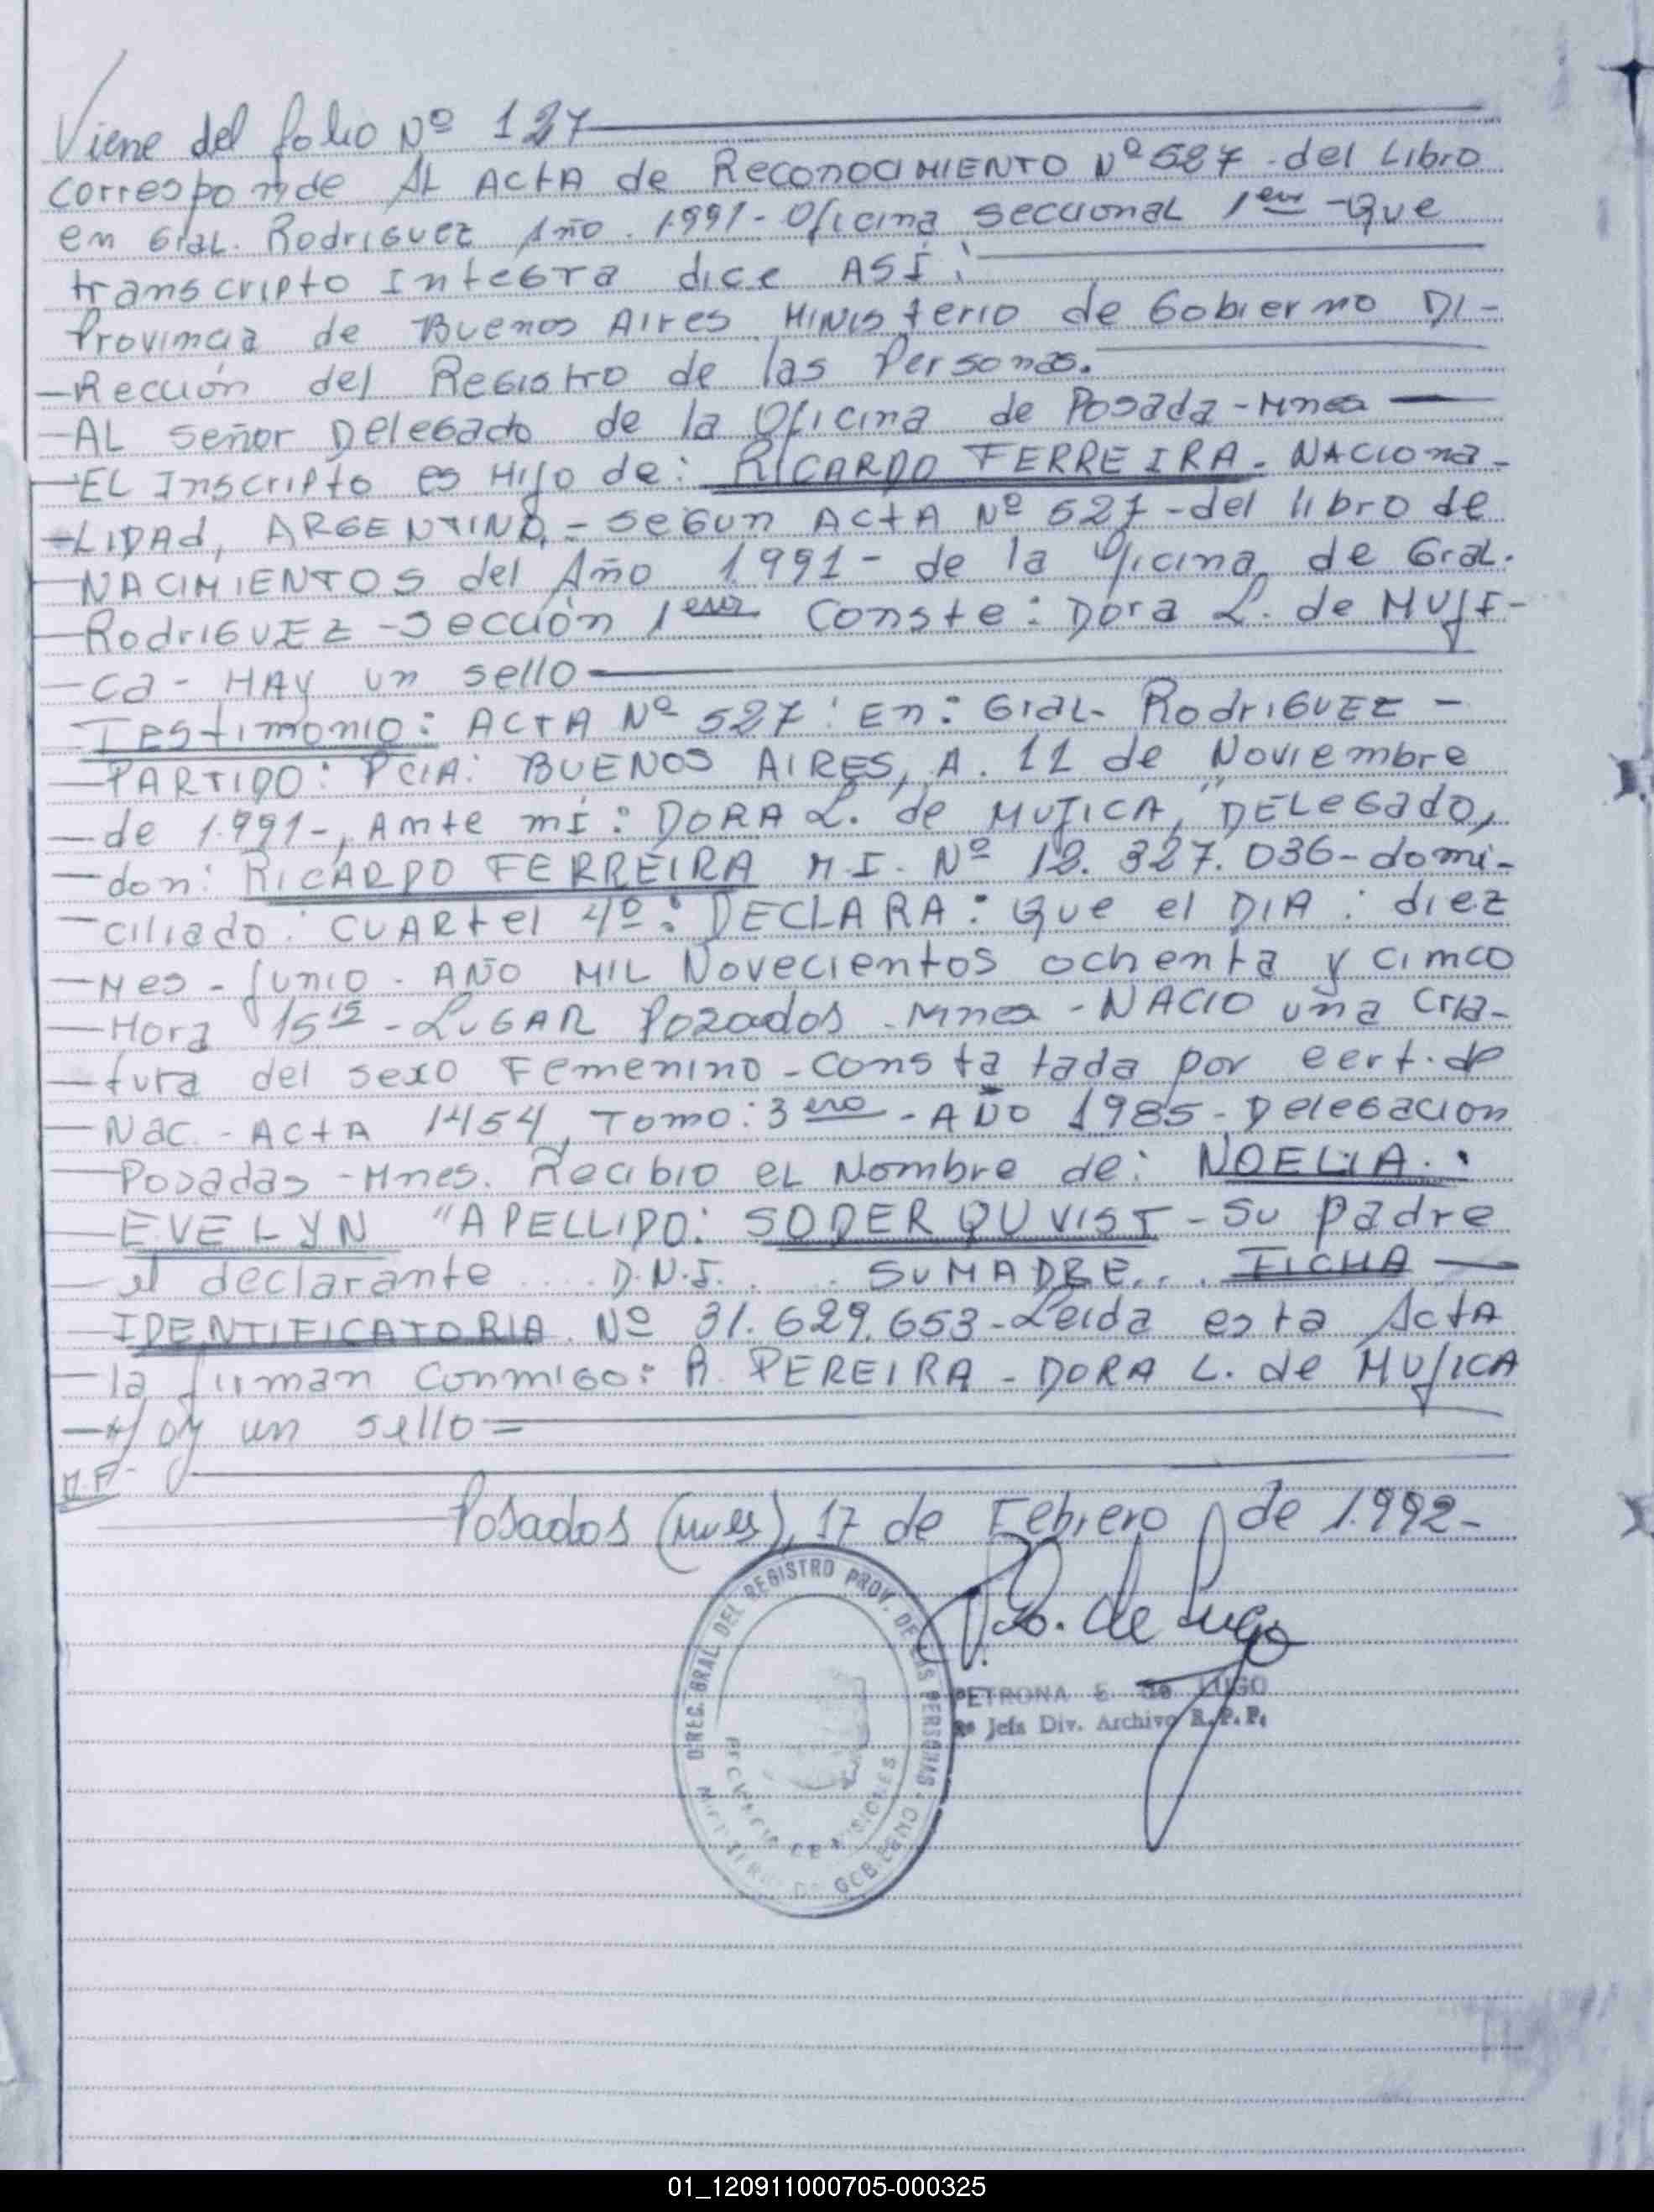 Viene del folio Nº 127
corresponde AL ActA de ReconociMIENTO Nº 527 - del Libro
en Gral. Rodriguez Año 1.991 - Oficina seccional 1era - Que
transcripto Integra dice ASÍ:
Provincia de Buenos Aires Ministerio de Gobierno DI-
-Rección del Registro de las Personas.
-AL Señor Delegado de la Oficina de Posada - Mnes
-EL Inscripto es Hijo de: RICARDO FERREIRA - NAciona-
-LIDAd, ARGENTINO, - segun ActA Nº 527 - del libro de
-NACIMIENTOS del Año 1.991 - de la Oficina de Gral.
-RodriGUEZ - Sección 1era Conste: Dora L. de MUJI-
-ca - HAY un sello
-Testimonio: ACTA Nº 527: En: Gral. RodriGUEZ -
-PARTIDO: PCIA: BUENOS AIRES, A. 11 de Noviembre
-de 1.991-, Ante mí: DORA L. de MUJICA, DELegado,
-don: RICARDO FERREIRA M.I. Nº 12.327.036 - domi-
-ciliado: CUARtel 4º: DECLARA: Que el DIA: diez
-Mes - Junio - AÑO MIL Novecientos ochenta y cinco
-Hora 15 15 - LUGAR Pozadas - Mnes - NACIO una cria-
-tura del sexo Femenino - Constatada por cert. de
-Nac. - ActA 1454, Tomo: 3ero - AÑO 1985 - Delegacion
-Posadas - Mnes. Recibio eL Nombre de: NOELIA
-EVELYN "APELLIDO: SODERQUVIST - Su padre
-el declarante .... D.N.I. . . SU MADRE . . . FICHA
-IDENTIFICATORIA Nº 31.629.653 - Leida esta ActA
-la firman conmigo: R. PEREIRA - DORA L. de MUJICA
-Hay un sello =
Posadas (Mnes), 17 de Febrero de 1.992 -
DIREC. GRAL DEL REGISTRO PROV. DE LAS PERSONAS
MINISTERIO DE GOBIERNO
PROVINCIA DE MISIONES
P. E. de Lugo
PETRONA E. de LUGO
Jefa Div. Archivo R.P.P.
01_120911000705-000325